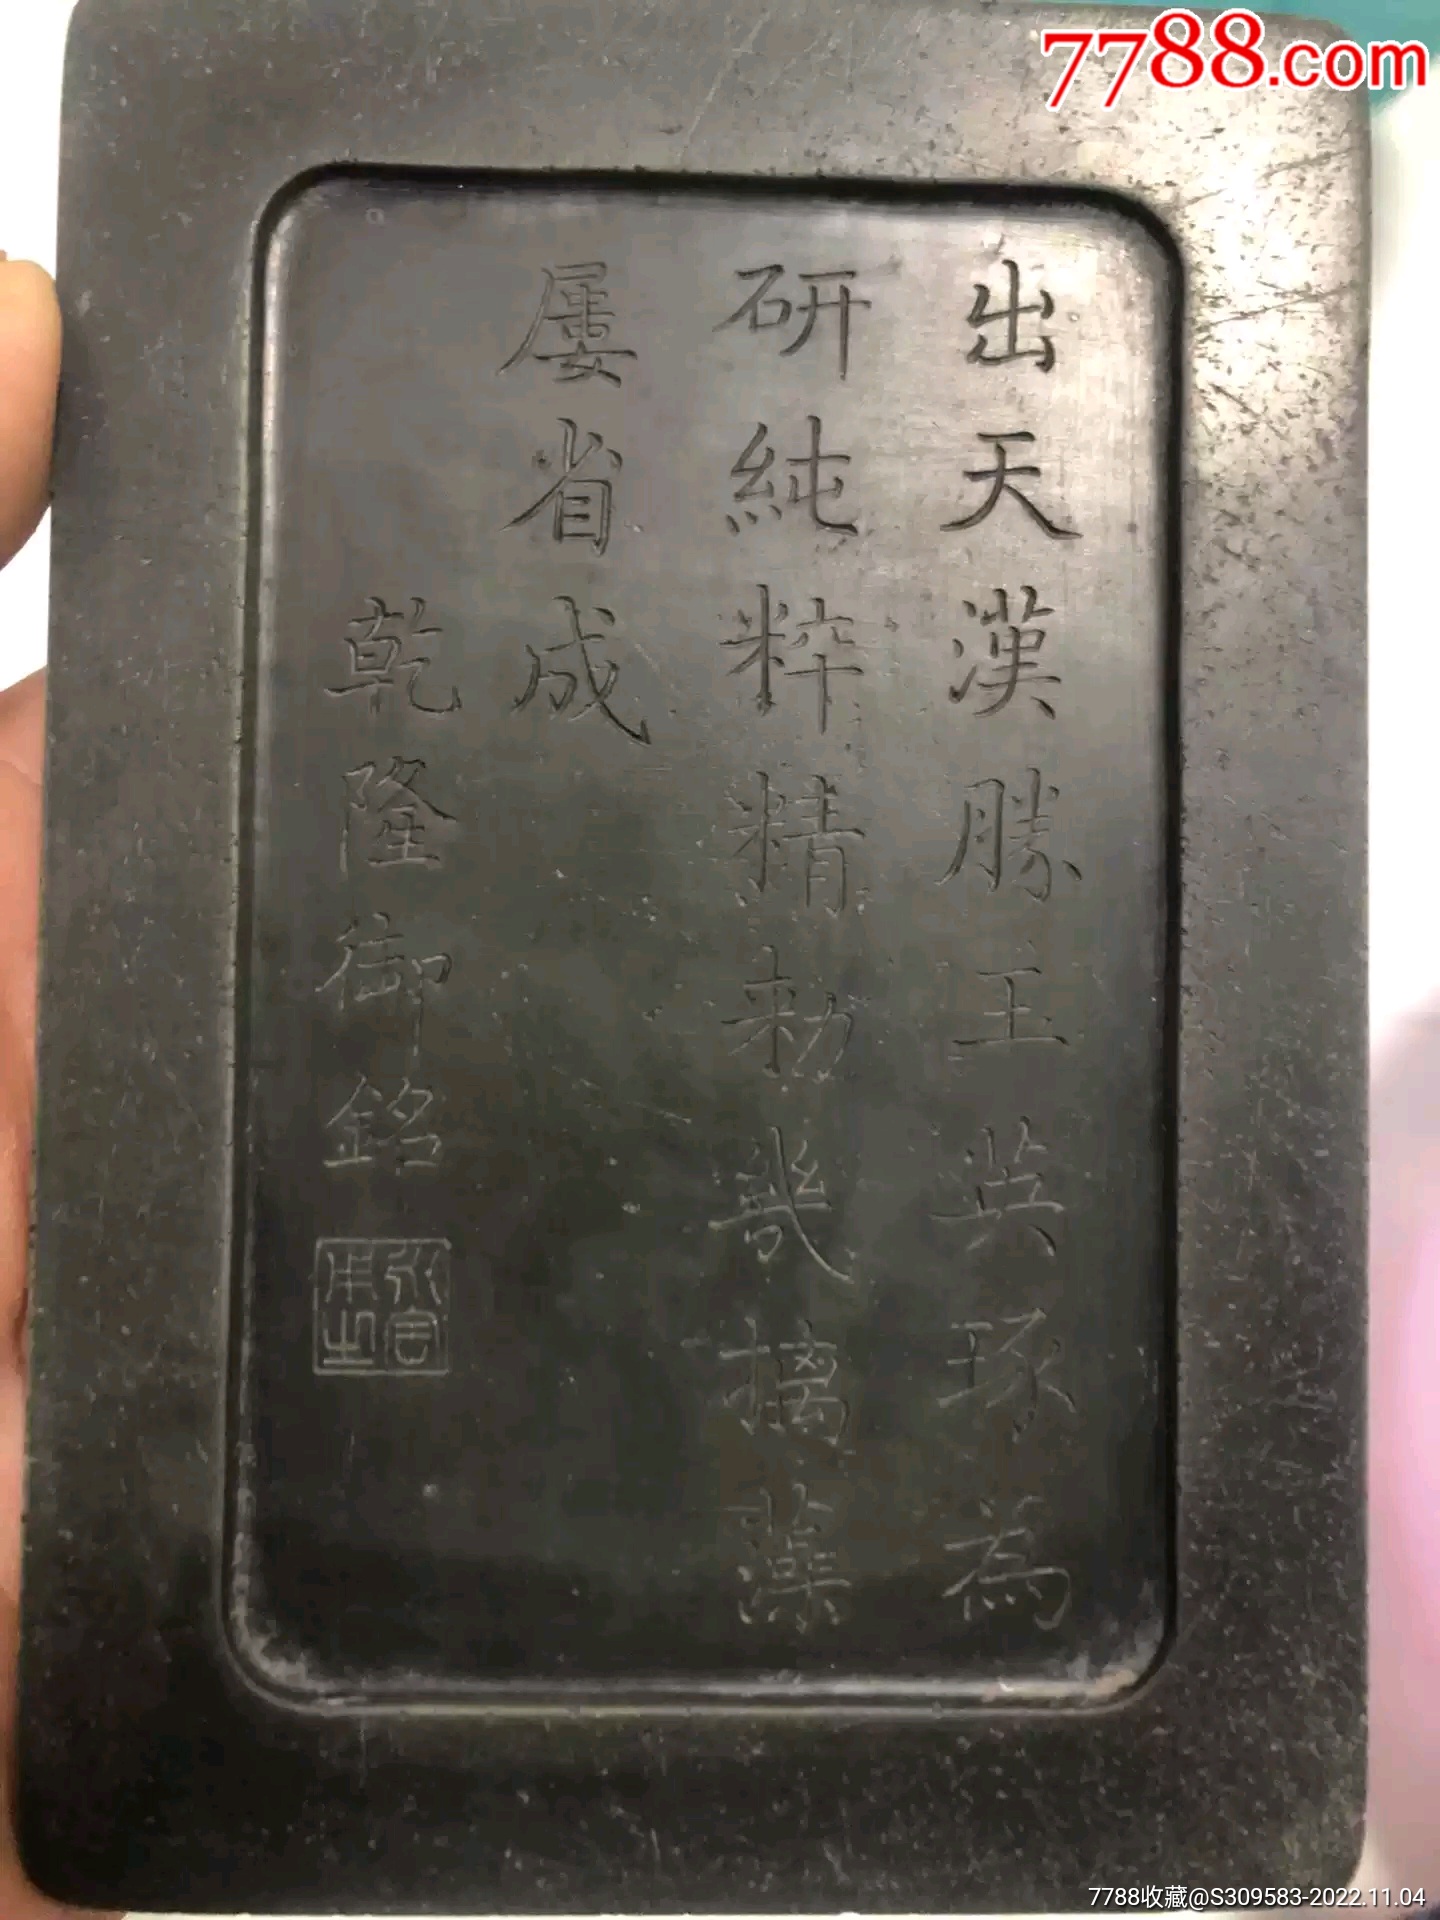 7788.com
出天漢勝玉英琢為
研純粹精勅幾摛藻
屢省成
乾隆御銘
7788收藏@S309583-2022.11.04